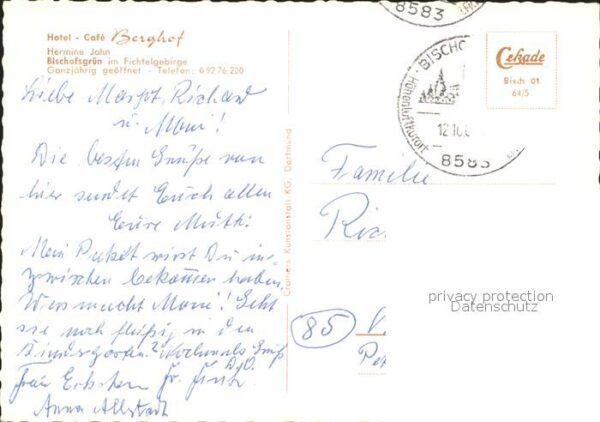 Hotel - Café Berghof
Hermine Jahn
Bischofsgrün im Fichtelgebirge
Ganzjährig geöffnet - Telefon: 0 92 76 200
Liebe Margot, Richard
u. Moni!
Die besten Grüße von
hier sendet Euch allen
Eure Mutti.
Mein Paket wirst Du in-
zwischen bekommen haben.
Was macht Moni! Geht
sie noch fleißig in den
Kindergarten? Nochmals Gruß
D. O.
Frau Fr.
Anna
Cramers Kunstanstalt KG, Dortmund
8583
BISCHO
Höhenluftkurort
12.10.
8583
Cekade
Bisch 01
64/5
Familie
Ric
85
Pet
privacy protection
Datenschutz